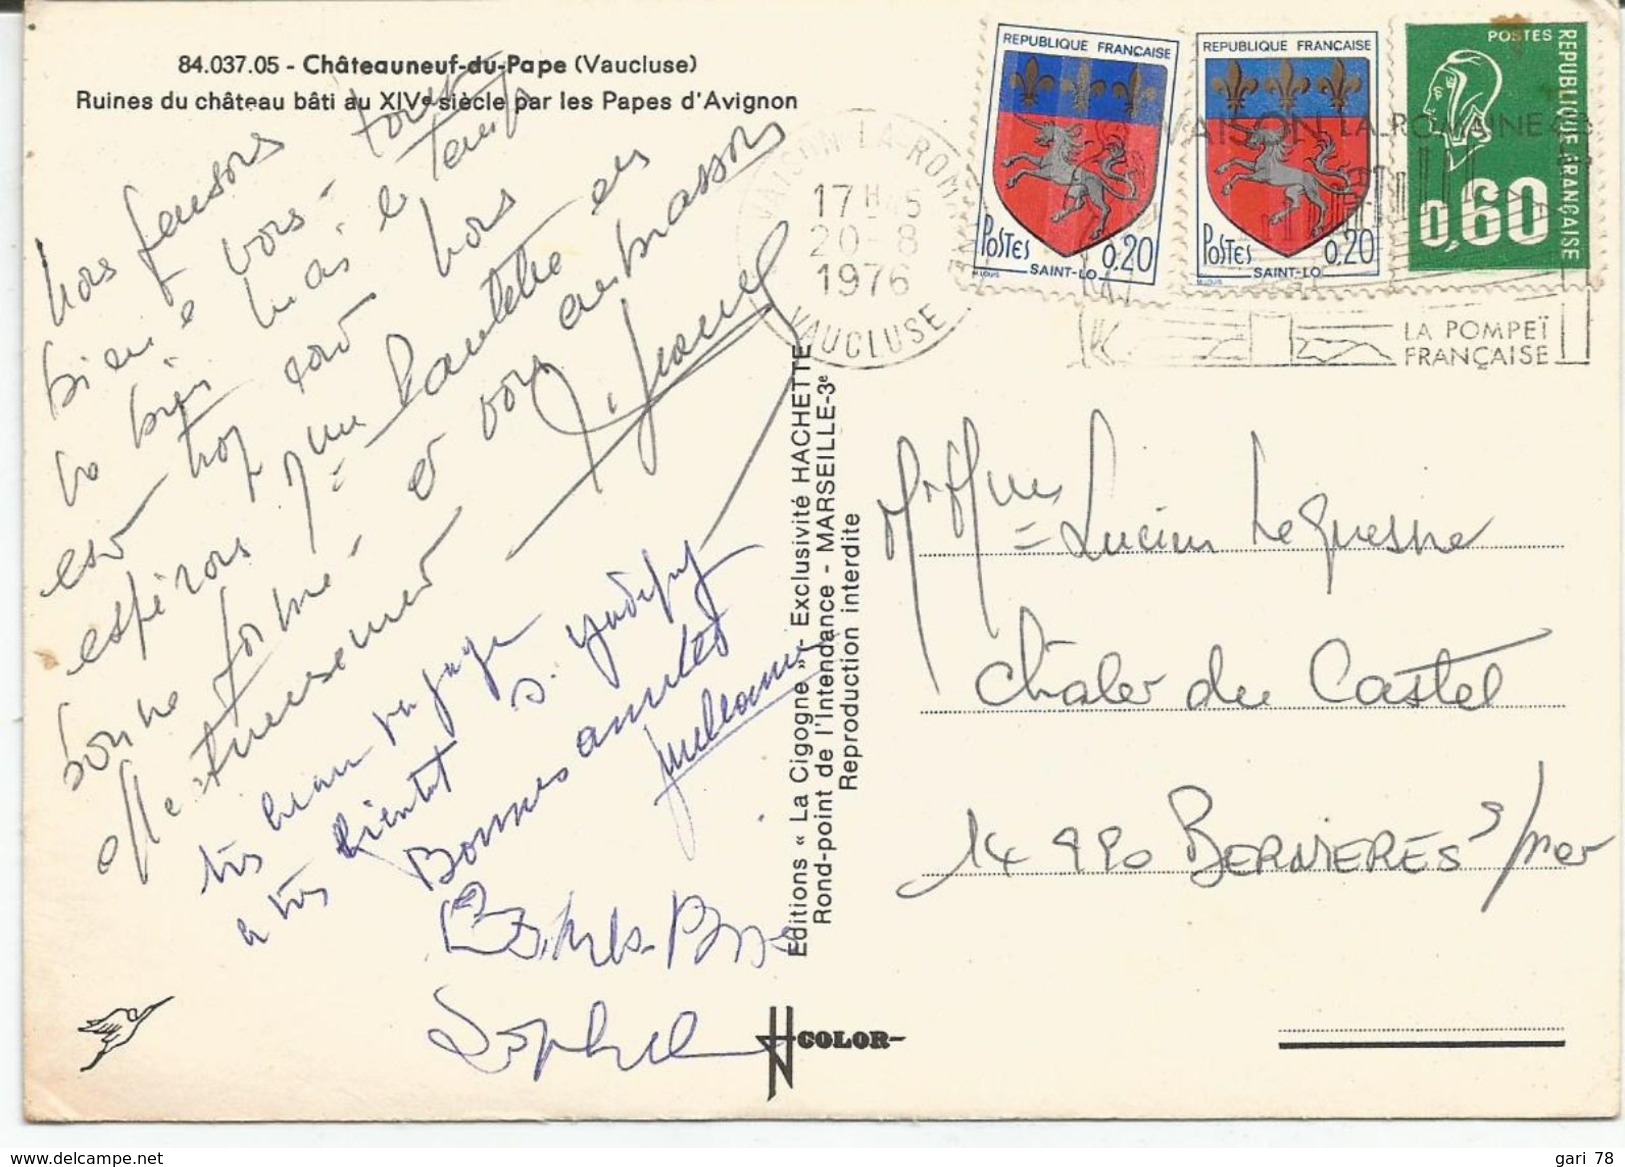 84.037.05 - Châteauneuf-du-Pape (Vaucluse)
Ruines du château bâti au XIVe siècle par les Papes d'Avignon
nous pensons tout
bien à vous -
va bien mais le temps
est trop court nous
espérons que vous êtes en
bonne forme - et vous embrassons
affectueusement
très beau voyage
à très bientôt
Bonnes amitiés
Sophie
Editions « La Cigogne » - Exclusivité HACHETTE
Rond-point de l'Intendance - MARSEILLE-3e
Reproduction interdite
COLOR
VAISON-LA-ROMAINE
17H45
20-8
1976
VAUCLUSE
REPUBLIQUE FRANÇAISE
POSTES
0,20
SAINT-LO
REPUBLIQUE FRANÇAISE
POSTES
0,20
SAINT-LO
POSTES
REPUBLIQUE FRANÇAISE
0,60
VAISON LA ROMAINE
LA POMPEÏ
FRANÇAISE
Mr Mme Lucien Lequesne
Chalet du Castel
14 990 BERNIERES s/mer
www.delcampe.net
gari 78